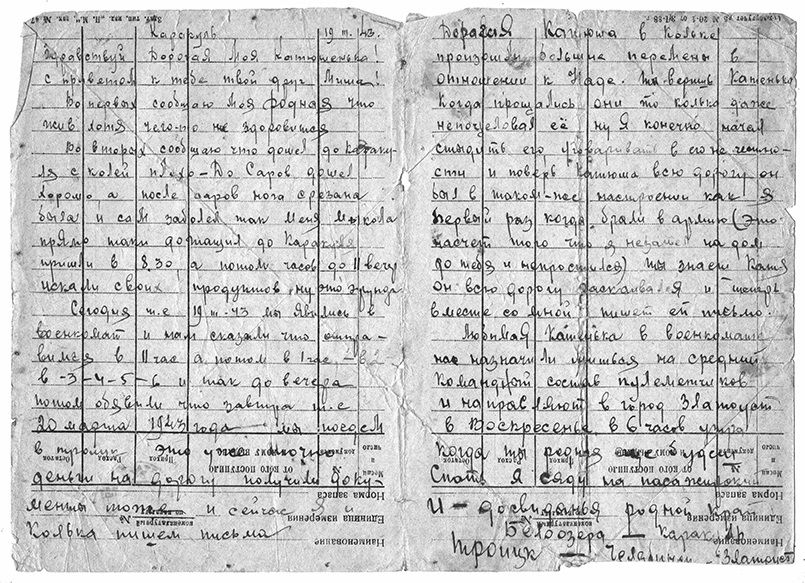 Каракуль 19 III. 43.
Здравствуй Дорогая Моя Катюшенька!
с приветом к тебе твой друг Миша!
Во первых сообщаю Моя родная что
жив хотя чего-то не здоровится
Во вторых сообщаю что дошел до Караку-
ля с колей плохо – До Саров дошел
хорошо, а после Саров нога срезана
была и сам заболел так меня Мыкола
прямо таки дотащил до Каракуля
пришли в 8.30, а потом часов до 11 вечер
искали своих продуктов ну это ерунда
Сегодня т.е 19 III-43 мы явились в
военкомат и нам сказали что отпра-
вимся в 11 час а потом в 1 час – в 2
в -3-4-5-6 и так до вечера
потом объявили что завтра т.е
20 марта 1943 года мы поедем
в троицк это уже точно
деньги на дорогу получили доку-
менты тоже и сейчас я и
Колька пишем письма
Наименование
Единица измерения
Норма запаса
Дорогая Катюша в Кольке
произошли большие перемены в
отношении к Наде. Ты веришь Катенька
Когда прощались они то колька даже
непоцеловал её ну я конечно начал
стыдить его, уговаривать в его не честно-
сти и поверь Катюша всю дорогу он
был в таком-нес настроении как я
первый раз когда брали в армию (это
насчет того что я незашел на дом
до тебя и непростился) ты знаешь Катя
Он всю дорогу раскаивался и теперь
вместе со мной пишет ей письмо.
Любимая Катенька в военкомате
нас назначили учиться на средний
командный состав пулеметчиков
и направляют в город Златоуст
в Воскресенье в 6 часов утра
Когда ты родная еще будешь
спать я сяду на пасажирский
и – досвиданья родной край
Белозера – Каракуль
Троицк – Челябинск – Златоуст
Наименование
Единица измерения
Норма запаса